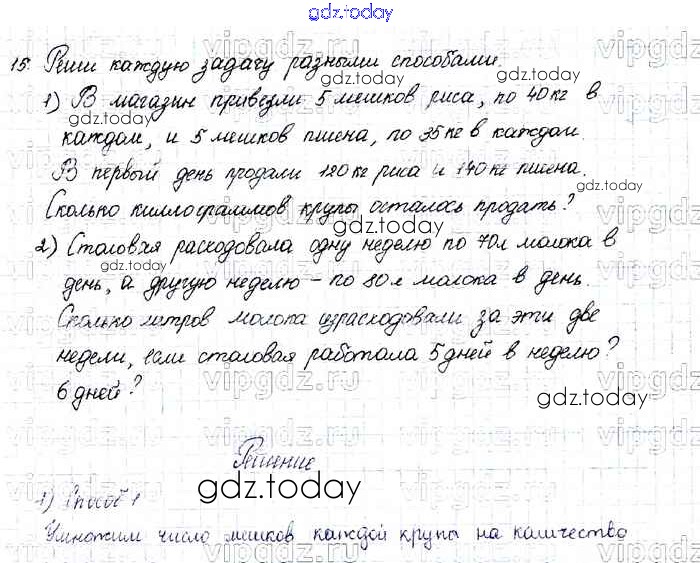 gdz.today
15. Реши каждую задачу разными способами.
1) В магазин привезли 5 мешков риса, по 40 кг в
каждом, и 5 мешков пшена, по 35 кг в каждом.
В первый день продали 120 кг риса и 140 кг пшена.
Сколько киллограммов крупы осталось продать?
2) Столовая расходовала одну неделю по 70 л молока в
день, а другую неделю – по 80 л молока в день.
Сколько литров молока израсходовали за эти две
недели, если столовая работала 5 дней в неделю?
6 дней?
Решение
1) Способ 1
Умножим число мешков каждой крупы на количество